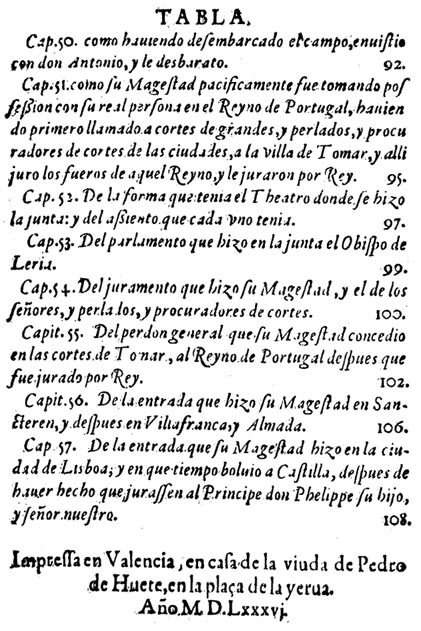 TABLA.
Cap.50. como hauiendo desembarcado el campo, enuistio
con don Antonio, y le desbarato. 92.
Cap.51. como su Magestad pacificamente fue tomando pos
session con su real persona en el Reyno de Portugal, hauien
do primero llamado a cortes de grandes, y perlados, y procu
radores de cortes de las ciudades, a la villa de Tomar, y alli
juro los fueros de aquel Reyno, y le juraron por Rey. 95.
Cap. 52. De la forma que tenia el Theatro donde se hizo
la junta: y del assiento que cada vno tenia. 97.
Cap.53. Del parlamento que hizo en la junta el Obispo de
Leria. 99.
Cap.54. Del juramento que hizo su Magestad, y el de los
señores, y perlados, y procuradores de cortes. 100.
Capit. 55. Del perdon general que su Magestad concedio
en las cortes de Tomar, al Reyno de Portugal despues que
fue jurado por Rey. 102.
Capit.56. De la entrada que hizo su Magestad en San-
cteren, y despues en Villafranca, y Almada. 106.
Cap. 57. De la entrada que su Magestad hizo en la ciu-
dad de Lisboa; y en que tiempo boluio a Castilla, despues de
hauer hecho que jurassen al Principe don Phelippe su hijo,
y señor nuestro. 108.
Impressa en Valencia, en casa de la viuda de Pedro
de Huete, en la plaça de la yerua.
Año, M. D. Lxxxvj.